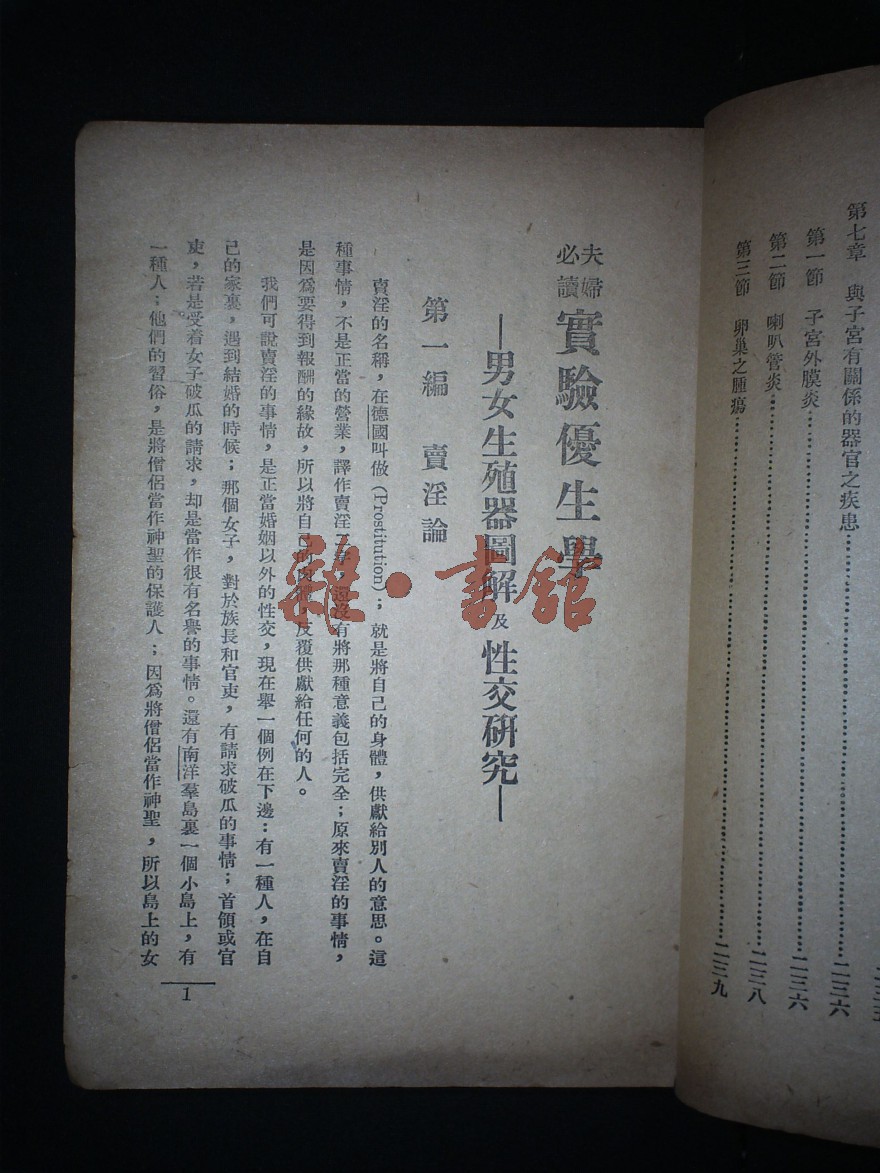 第七章 與子宮有關係的器官之疾患
第一節 子宮外膜炎……二三六
第二節 喇叭管炎……二三八
第三節 卵巢之腫瘍……二三九
夫婦必讀 實驗優生學
—男女生殖器圖解及性交研究—
第一編 賣淫論
賣淫的名稱，在德國叫做(Prostitution)；就是將自己的身體，供獻給別人的意思。這
種事情，不是正當的營業，譯作賣淫二字，還沒有將那種意義包括完全；原來賣淫的事情，
是因爲要得到報酬的緣故，所以將自己的肉體，反覆供獻給任何的人。
我們可說賣淫的事情，是正當婚姻以外的性交，現在舉一個例在下邊：有一種人，在自
己的家裏，遇到結婚的時候；那個女子，對於族長和官吏，有請求破瓜的事情；首領或官
吏，若是受着女子破瓜的請求，却是當作很有名譽的事情。還有南洋羣島裏一個小島上，有
一種人；他們的習俗，是將僧侶當作神聖的保護人；因爲將僧侶當作神聖，所以島上的女
1
雜·書舘